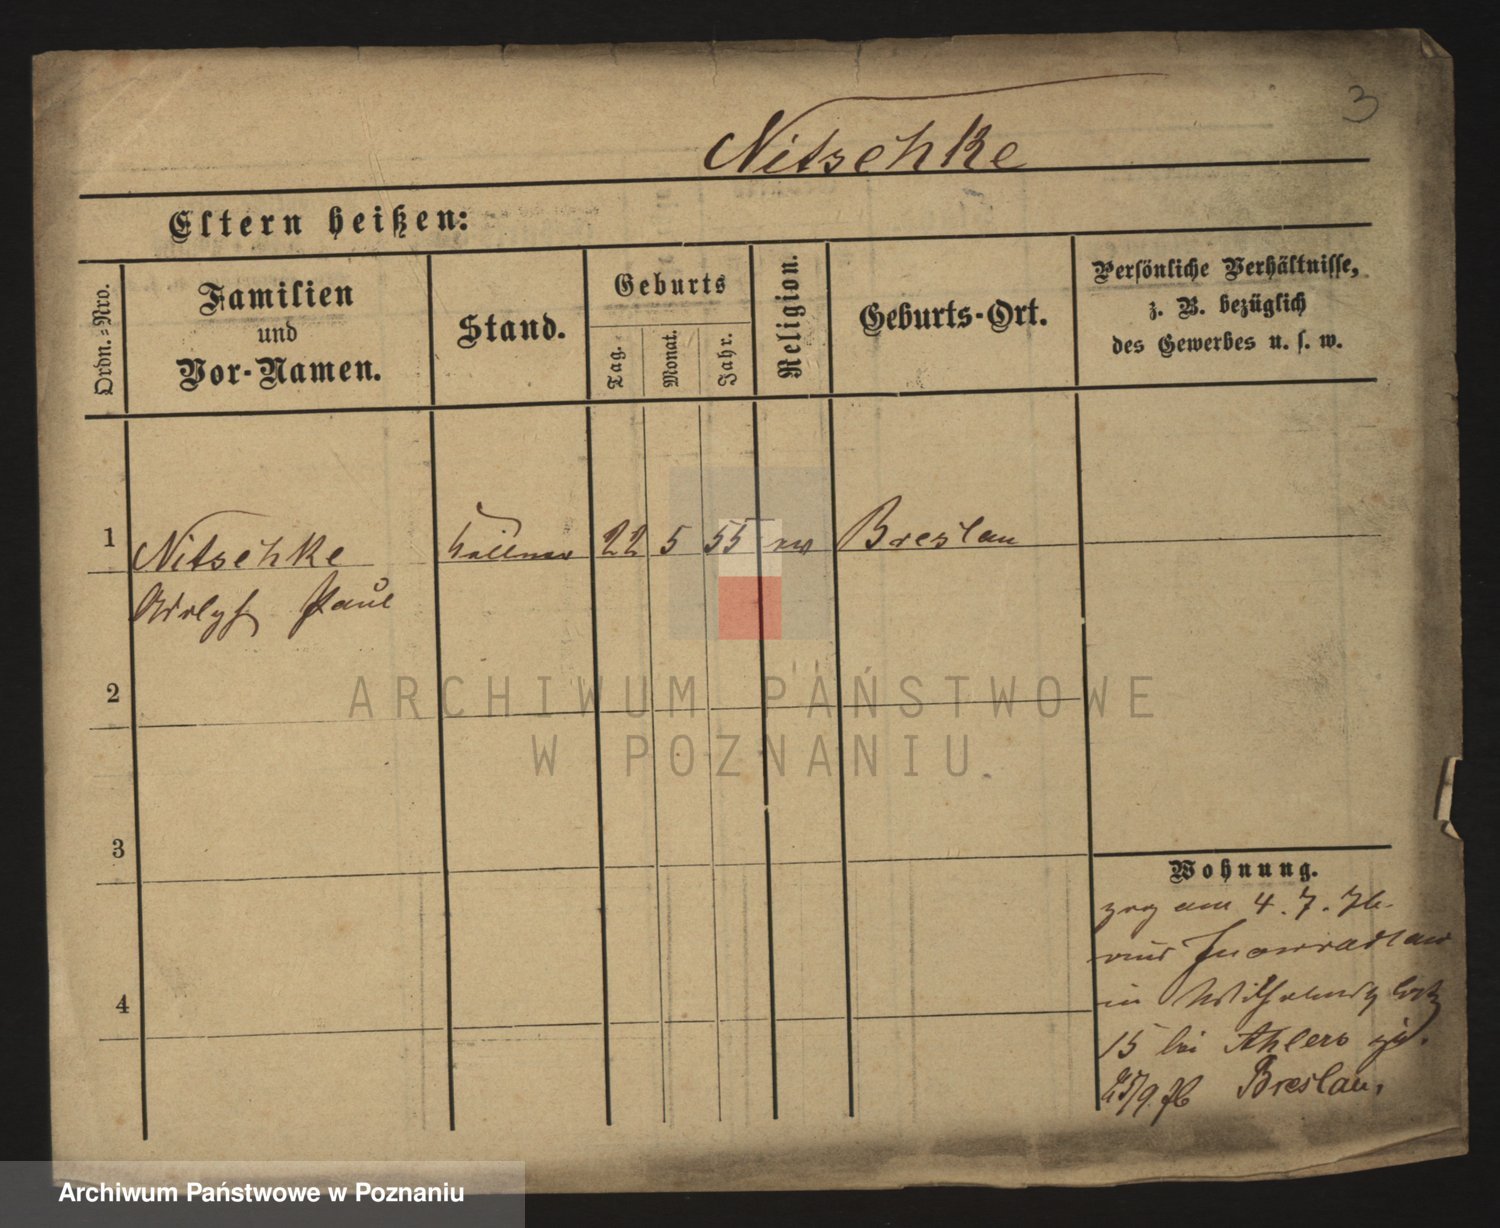 3
Nitschke
Eltern heißen:
Ordn.-Nro.
Familien
und
Vor-Namen.
Stand.
Geburts
Tag.
Monat.
Jahr.
Religion.
Geburts-Ort.
Persönliche Verhältnisse,
z. B. bezüglich
des Gewerbes u. s. w.
1 Nitschke Kellner 22 5 55 ev Breslau
Adolph Paul
2
3
4
Wohnung.
zog am 4. 7. 76.
aus Inowradlaw
in Wilhelmsplatz
15 bei Ahlers
25/9 76 Breslau.
ARCHIWUM PAŃSTWOWE
W POZNANIU
Archiwum Państwowe w Poznaniu